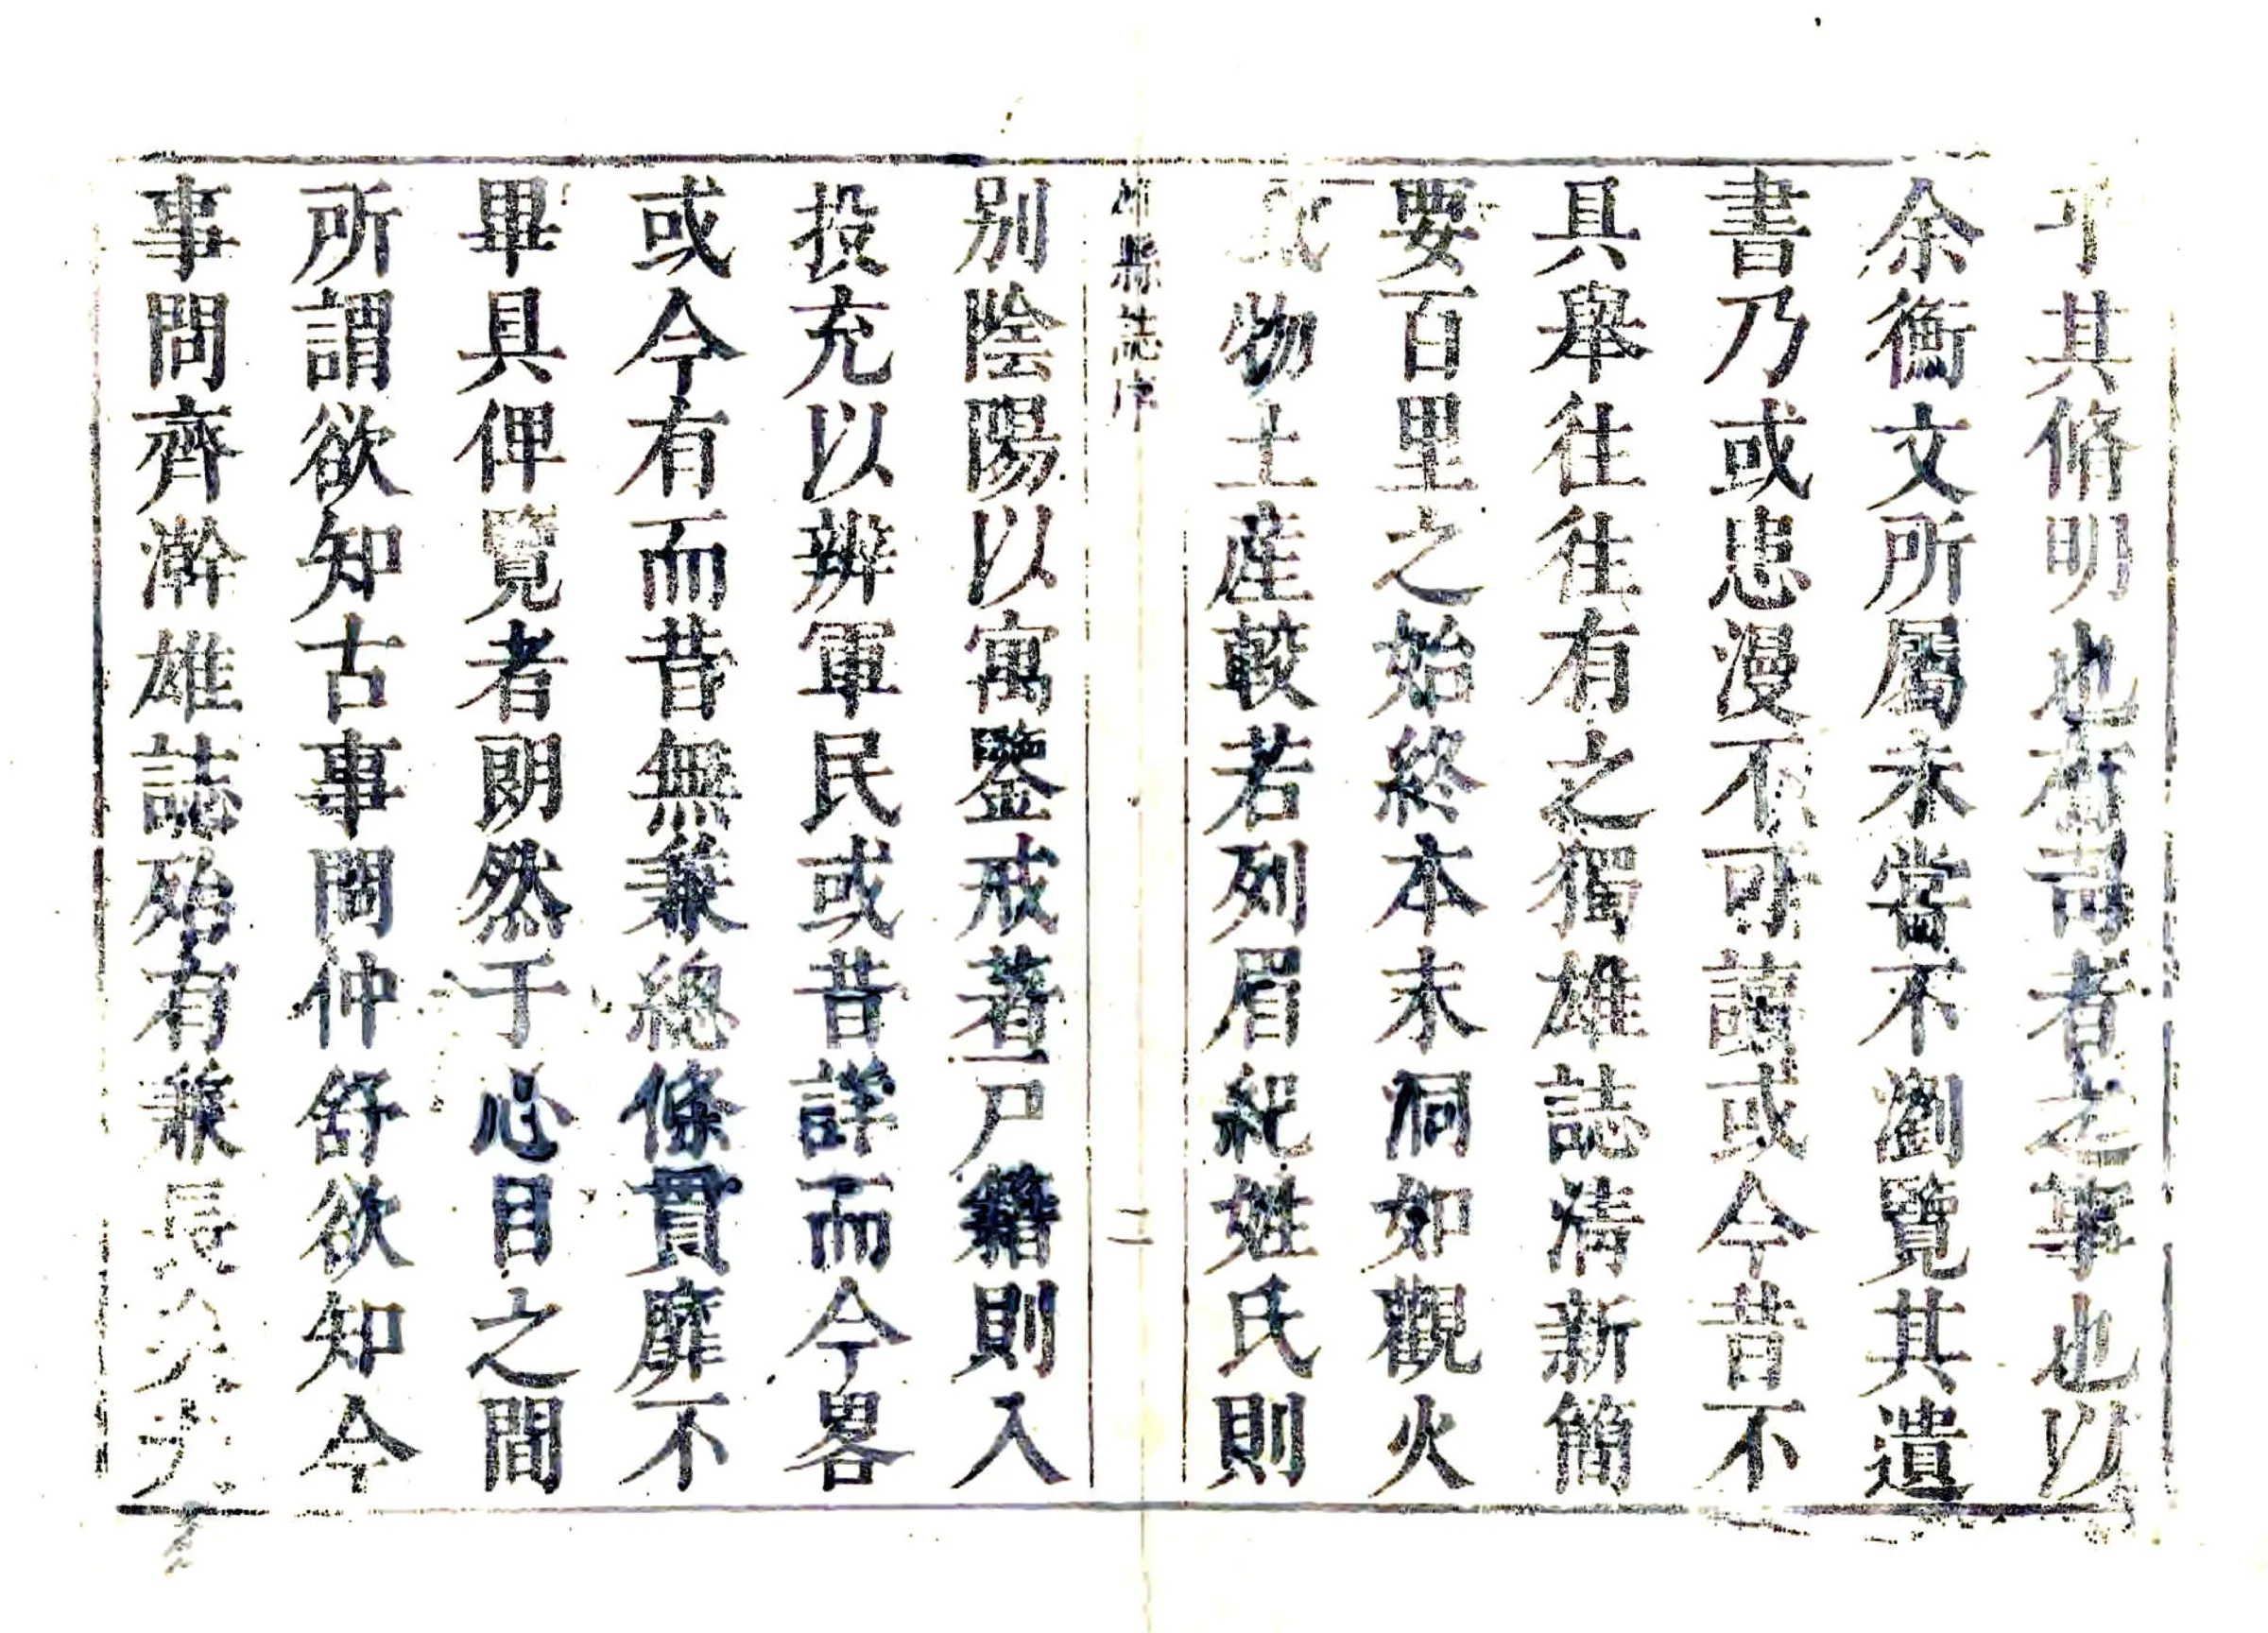 其脩明也有司者之事也以
余衡文所屬未嘗不瀏覽其遺
書乃或患漫不可讀或今昔不
具舉往往有之獨雄誌清新簡
要百里之始終本末洞如觀火
物土産較若列眉紀姓氏則
縣誌序
二
别陰陽以寓鑒戒著戸籍則入
投充以辨軍民或昔詳而今畧
或今有而昔無兼總條貫靡不
畢具俾覽者朗然于心目之間
所謂欲知古事問仲舒欲知今
事問齊澣雄誌殆有兼長